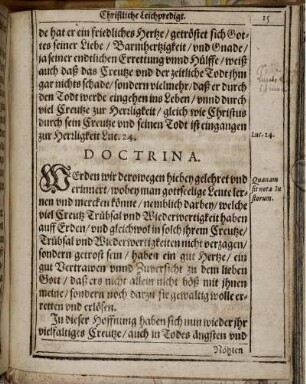 Christliche Leichpredigt.
15
de hat er ein friedliches Hertze / getröstet sich Got-
tes seiner Liebe / Barmhertzigkeit / vnd Gnade /
ja seiner endtlichen Errettung vnnd Hülffe / weiß
auch daß das Creutze vnd der zeitliche Todt ihm
gar nichts schade / sondern vielmehr / daß er durch
den Todt werde eingehen ins Leben / vnnd durch
viel Creutze zur Herzligkeit / gleich wie Christus
durch sein Creutze vnd seinen Todt ist eingangen
zur Herzligkeit Luc. 24.
Luc. 24.
DOCTRINA.
WErden wir derowegen hiebey gelehret vnd
erinnert / wobey man gottseelige Leute ler-
nen vnd mercken könne / nemblich darbey / welche
viel Creutz Trübsal vnd Wiederwertigkeit haben
auff Erden / vnd gleichwol in solch ihrem Creutze /
Trübsal vnd Wiederwertigkeiten nicht verzagen /
sondern getrost sein / haben ein gut Hertze / ein
gut Vertrawen vnnd Zuversicht zu dem lieben
Gott / daß ers nicht allein nicht böß mit ihnen
meine / sondern noch darzu sie gewaltig wolle er-
retten vnd erlösen.
Quænam
sit nota Iu-
storum.
In dieser Hoffnung haben sich nun wieder ihr
vielfältiges Creutze / auch in Todes ängsten vnd
Nöhten